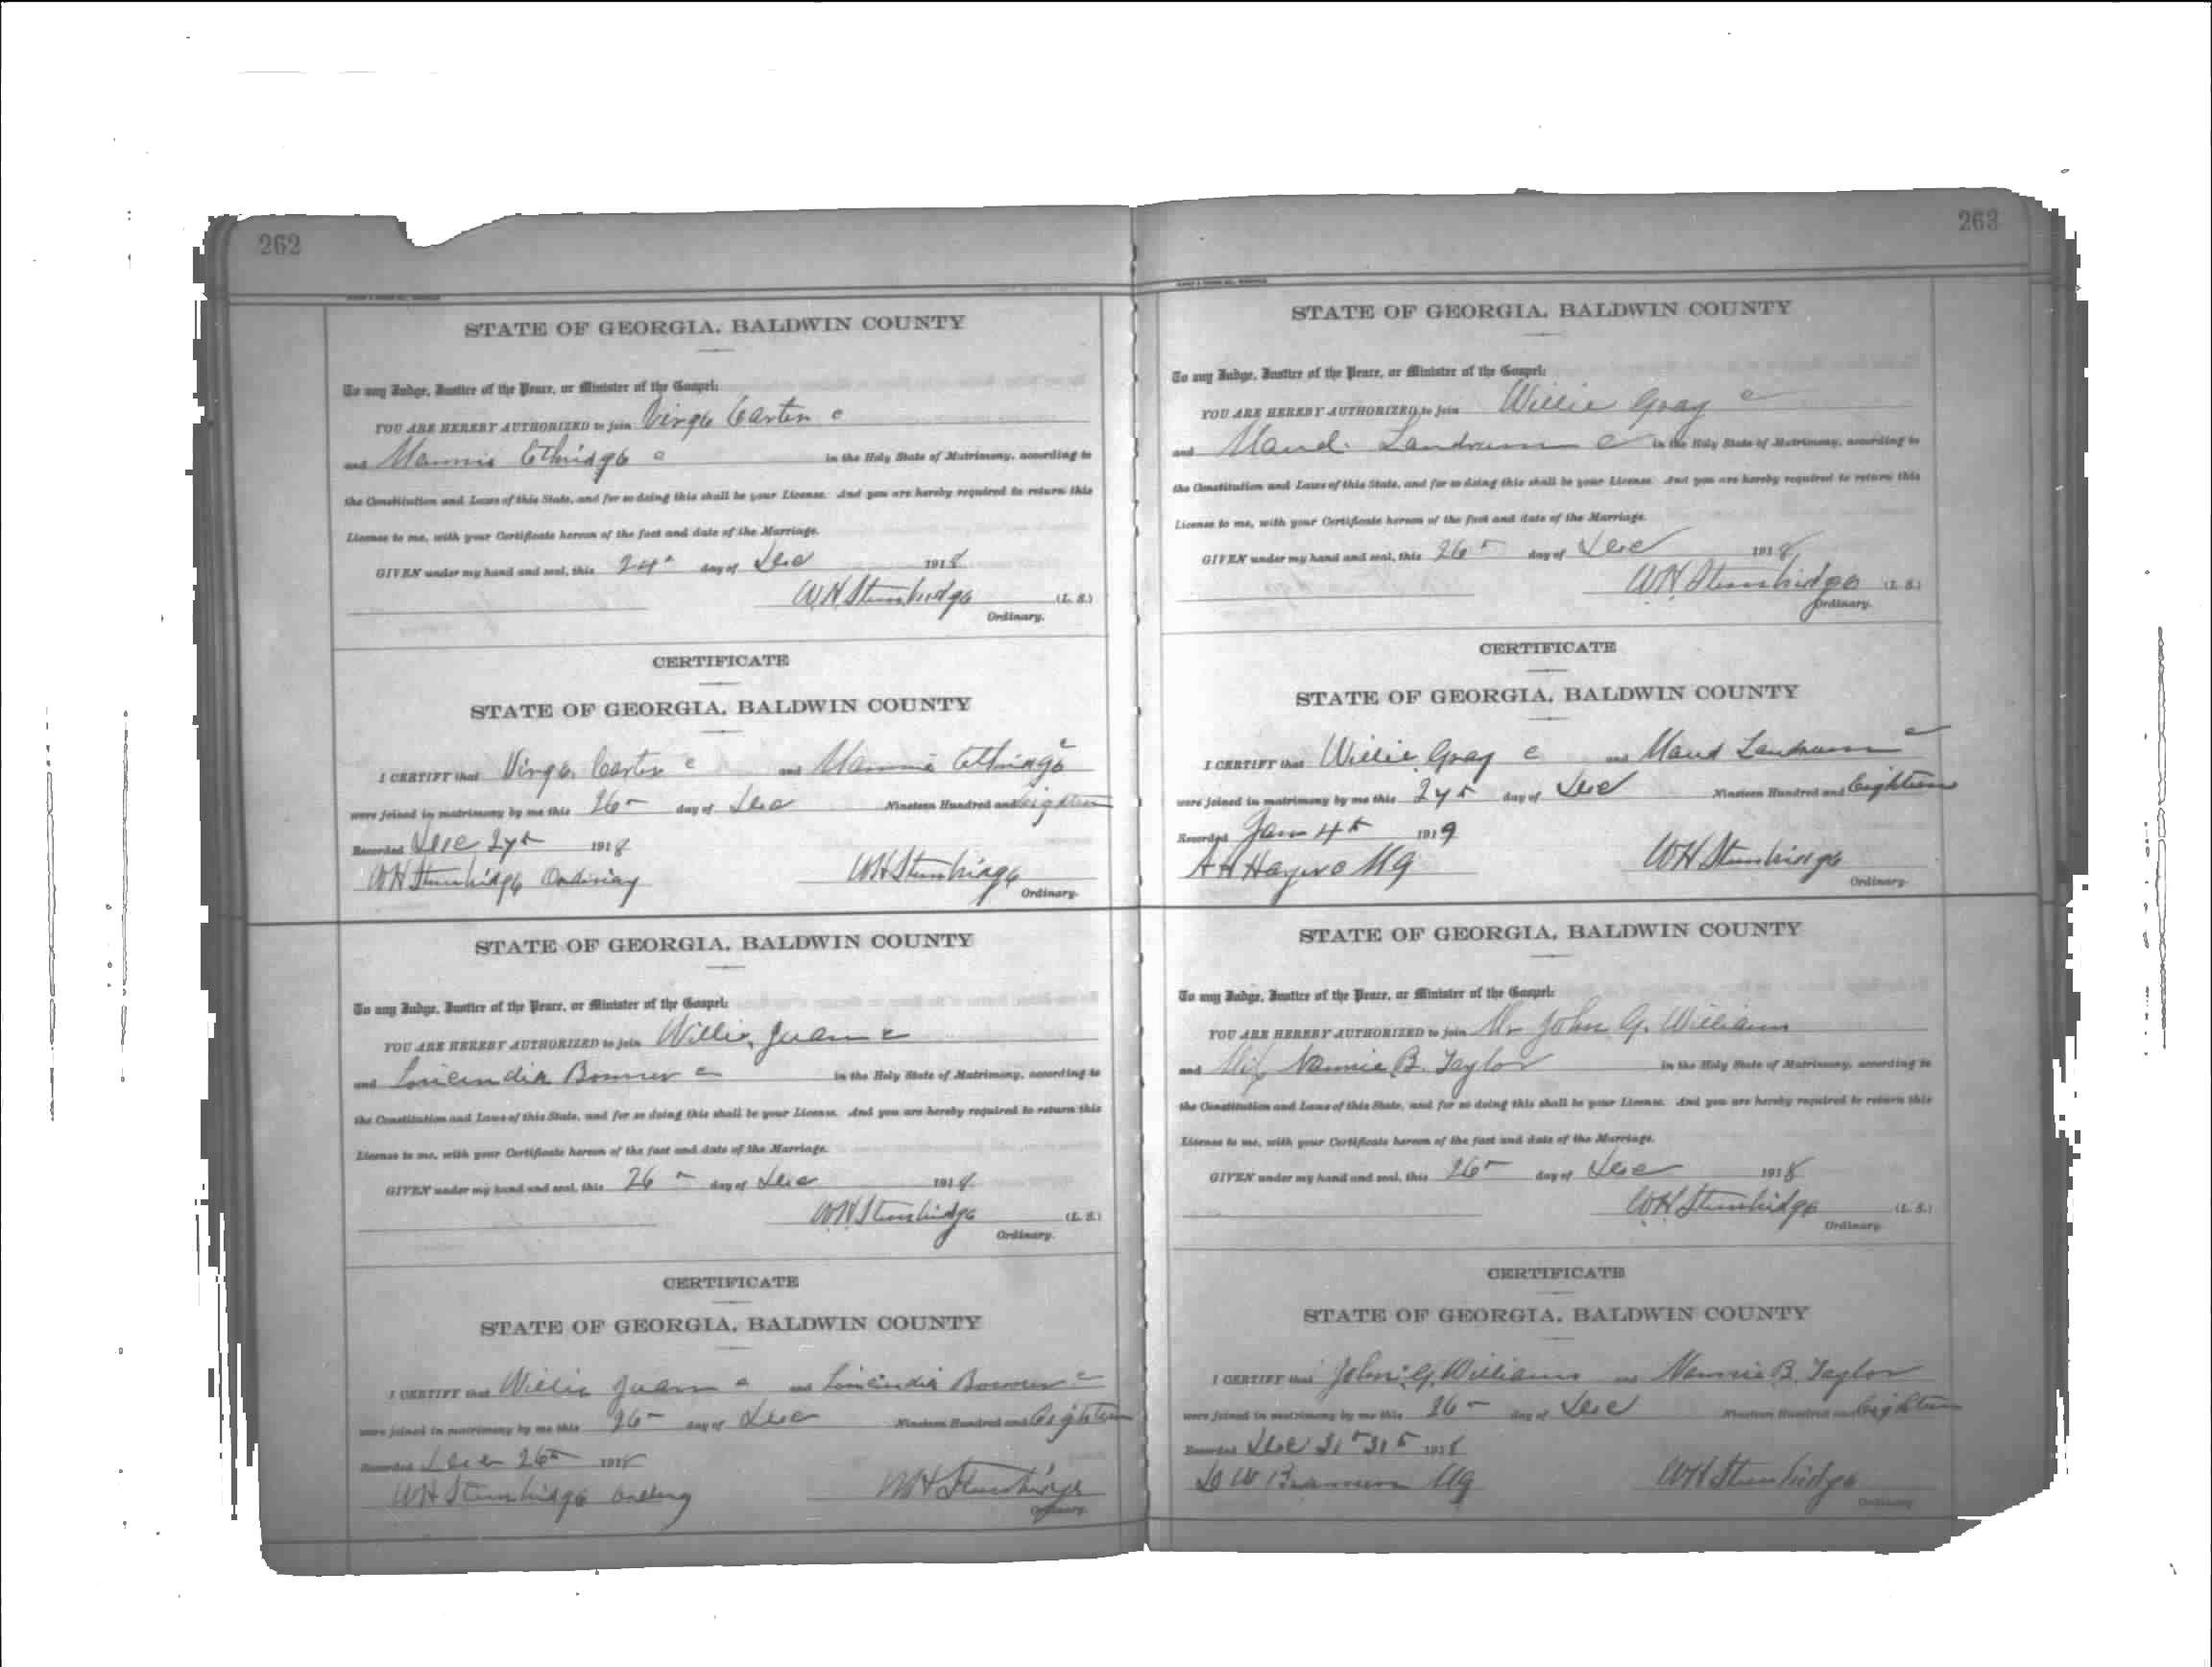 262
STATE OF GEORGIA, BALDWIN COUNTY
To any Judge, Justice of the Peace, or Minister of the Gospel:
YOU ARE HEREBY AUTHORIZED to join Virge Carter c
and Mammie Ethridge c in the Holy State of Matrimony, according to
the Constitution and Laws of this State, and for so doing this shall be your License. And you are hereby required to return this
License to me, with your Certificate hereon of the fact and date of the Marriage.
GIVEN under my hand and seal, this 24 day of Dec 1918
WH Stembridge (L. S.)
Ordinary.
CERTIFICATE
STATE OF GEORGIA, BALDWIN COUNTY
I CERTIFY that Virge Carter c and Mammie Ethridge c
were joined in matrimony by me this 26 day of Dec Nineteen Hundred and eighteen
Recorded Dec 27 1918
WH Stembridge Ordinary WH Stembridge
Ordinary.
STATE OF GEORGIA, BALDWIN COUNTY
To any Judge, Justice of the Peace, or Minister of the Gospel:
YOU ARE HEREBY AUTHORIZED to join Willie c
and Bonner c in the Holy State of Matrimony, according to
the Constitution and Laws of this State, and for so doing this shall be your License. And you are hereby required to return this
License to me, with your Certificate hereon of the fact and date of the Marriage.
GIVEN under my hand and seal, this 26 day of Dec 1918
WH Stembridge (L. S.)
Ordinary.
CERTIFICATE
STATE OF GEORGIA, BALDWIN COUNTY
I CERTIFY that Willie c and Bonner c
were joined in matrimony by me this 26 day of Dec Nineteen Hundred and Eighteen
Recorded Dec 26 1918
WH Stembridge WH Stembridge
Ordinary.
263
STATE OF GEORGIA, BALDWIN COUNTY
To any Judge, Justice of the Peace, or Minister of the Gospel:
YOU ARE HEREBY AUTHORIZED to join Willie Gray c
and Maud Landrum c in the Holy State of Matrimony, according to
the Constitution and Laws of this State, and for so doing this shall be your License. And you are hereby required to return this
License to me, with your Certificate hereon of the fact and date of the Marriage.
GIVEN under my hand and seal, this 26 day of Dec 1918
WH Stembridge (L. S.)
Ordinary.
CERTIFICATE
STATE OF GEORGIA, BALDWIN COUNTY
I CERTIFY that Willie Gray c and Maud Landrum c
were joined in matrimony by me this 27 day of Dec Nineteen Hundred and Eighteen
Recorded Jan 4 1919
MG WH Stembridge
Ordinary.
STATE OF GEORGIA, BALDWIN COUNTY
To any Judge, Justice of the Peace, or Minister of the Gospel:
YOU ARE HEREBY AUTHORIZED to join Mr John G. Williams
and Nannie B. Taylor in the Holy State of Matrimony, according to
the Constitution and Laws of this State, and for so doing this shall be your License. And you are hereby required to return this
License to me, with your Certificate hereon of the fact and date of the Marriage.
GIVEN under my hand and seal, this 26 day of Dec 1918
WH Stembridge (L. S.)
Ordinary.
CERTIFICATE
STATE OF GEORGIA, BALDWIN COUNTY
I CERTIFY that John G. Williams and Nannie B. Taylor
were joined in matrimony by me this 26 day of Dec Nineteen Hundred and Eighteen
Recorded Dec 31 31 1918
MG WH Stembridge
Ordinary.